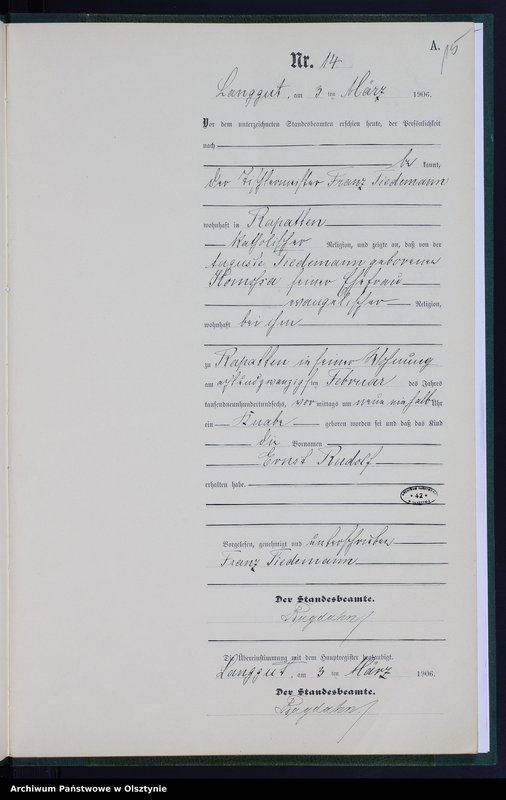 A.
15
Nr. 14
Langgut, am 3 ten März 1906.
Vor dem unterzeichneten Standesbeamten erschien heute, der Persönlichkeit
nach
be kannt,
der Tischlermeister Franz Tiedemann
wohnhaft in Rapatten
katholischer Religion, und zeigte an, daß von der
Auguste Tiedemann geborenen
seiner Ehefrau
evangelischer Religion,
wohnhaft bei ihm
zu Rapatten in seiner Wohnung
am achtundzwanzigsten Februar des Jahres
tausendneunhundertundsechs, vor mittags um neun ein halb Uhr
ein Knabe geboren worden sei und daß das Kind
die Vornamen
Ernst Rudolf
erhalten habe.
42
Vorgelesen, genehmigt und unterschrieben
Franz Tiedemann
Der Standesbeamte.
Die Übereinstimmung mit dem Hauptregister beglaubigt.
Langgut, am 3 ten März 1906.
Der Standesbeamte.
Archiwum Państwowe w Olsztynie